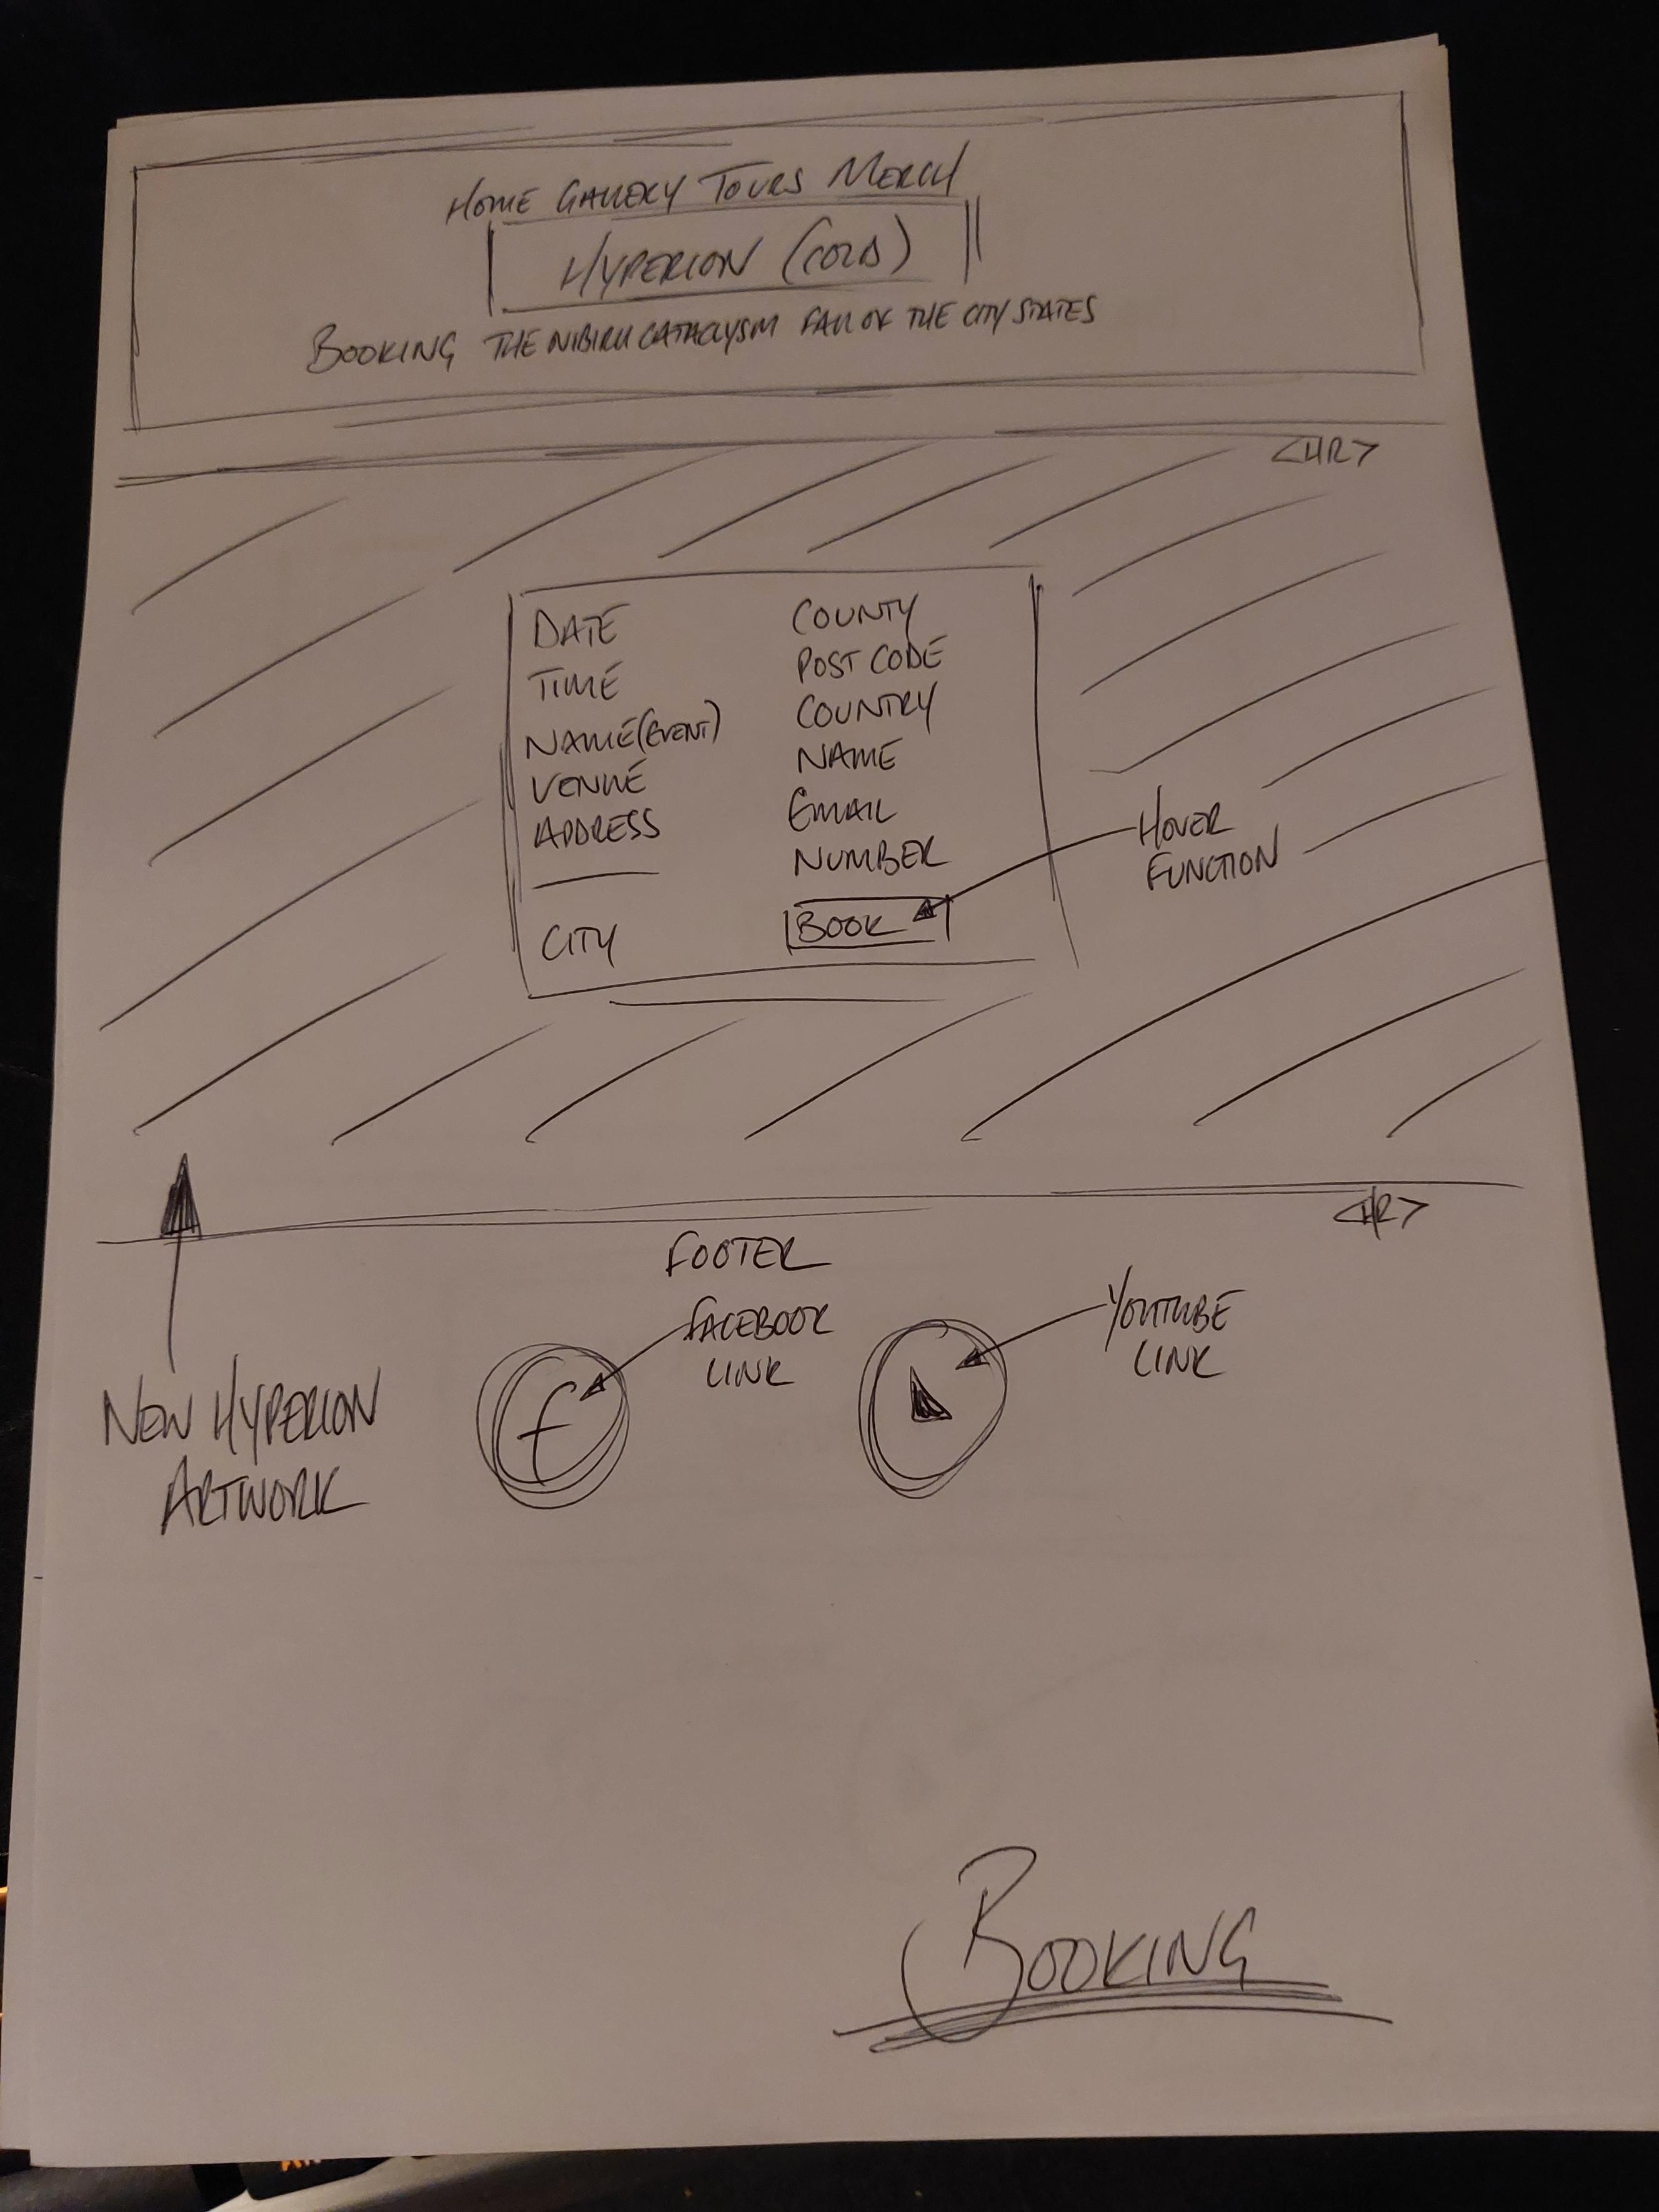 HOME GALLERY TOURS MERCH
HYPERION (COLD)
BOOKING THE NIBIRU CATACLYSM FALL OF THE CITY STATES
<HR>
DATE
TIME
NAME (EVENT)
VENUE
ADDRESS
CITY
COUNTY
POST CODE
COUNTRY
NAME
EMAIL
NUMBER
BOOK
HOVER
FUNCTION
<HR>
FOOTER
FACEBOOK
LINK
YOUTUBE
LINK
f
NEW HYPERION
ARTWORK
BOOKING